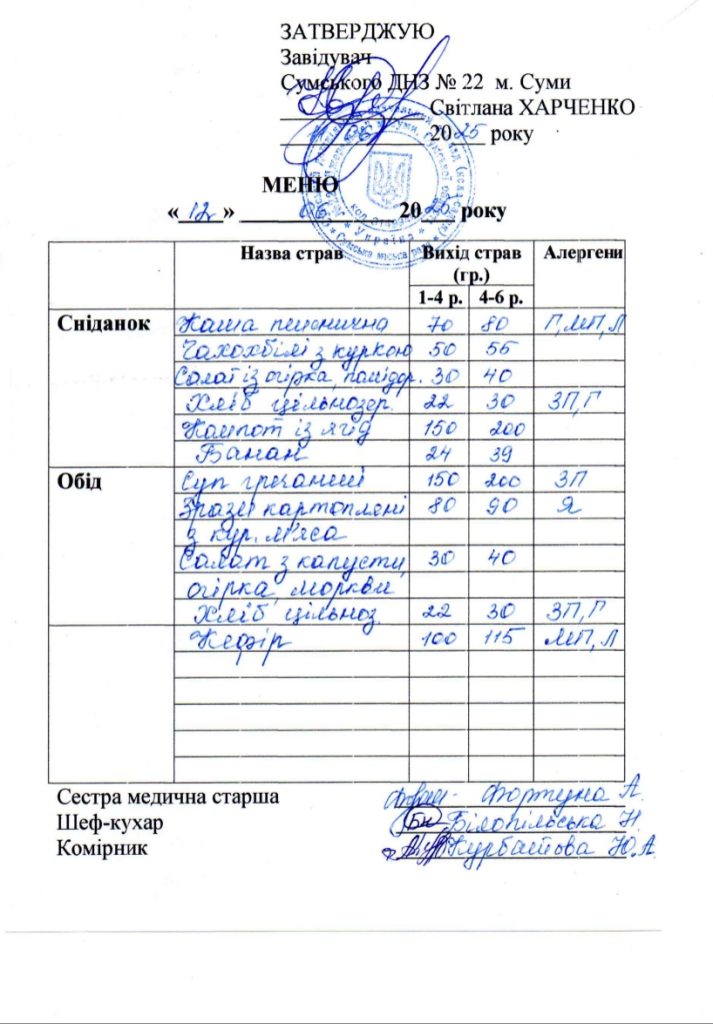 ЗАТВЕРДЖУЮ
Завідувач
Сумського ДНЗ № 22 м. Суми
Світлана ХАРЧЕНКО
2025 року
МЕНЮ
«12» 06 2025 року
Назва страв Вихід страв (гр.) Алергени
1-4 р. 4-6 р.
Сніданок Каша пшенична 70 80 Г,МП,Л
Чахохбілі з куркою 50 55
Салат із огірка, помідор. 30 40
Хліб цільнозер. 22 30 ЗП,Г
Компот із ягід 150 200
Банан 24 39
Обід Суп гречаний 150 200 ЗП
Зрази картоплені 80 90 Я
з кур. м'яса
Салат з капусти, 30 40
огірка, моркви
Хліб цільноз. 22 30 ЗП,Г
Кефір 100 115 МП,Л
Сестра медична старша Фортуна А.
Шеф-кухар Білопільська Н.
Комірник Курбатова Ю.А.
Україна